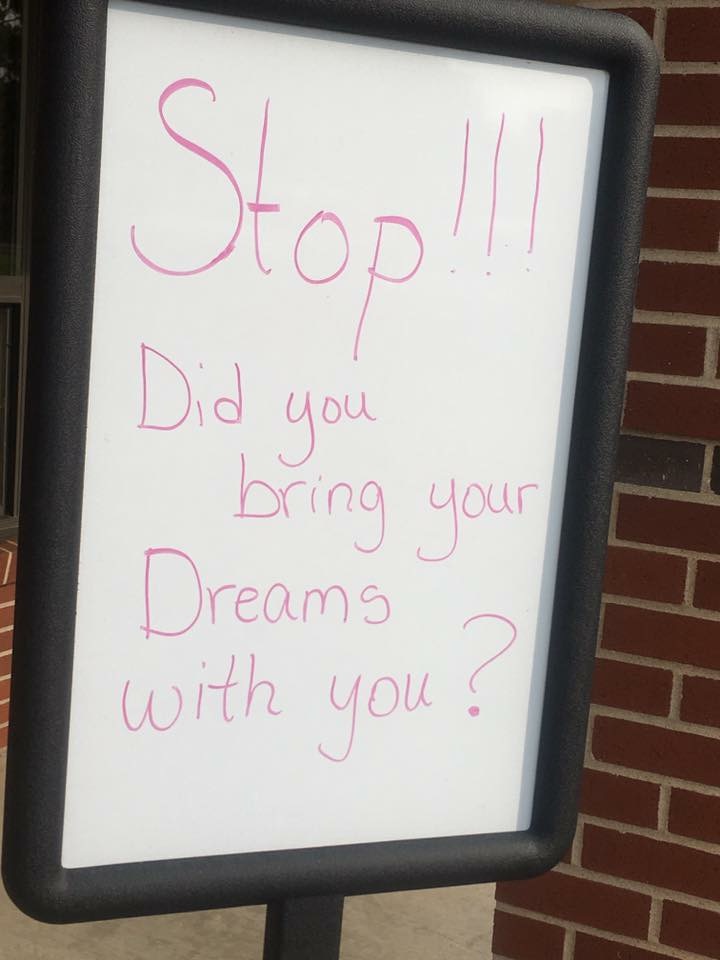 Stop!!!
Did you
bring your
Dreams
with you?